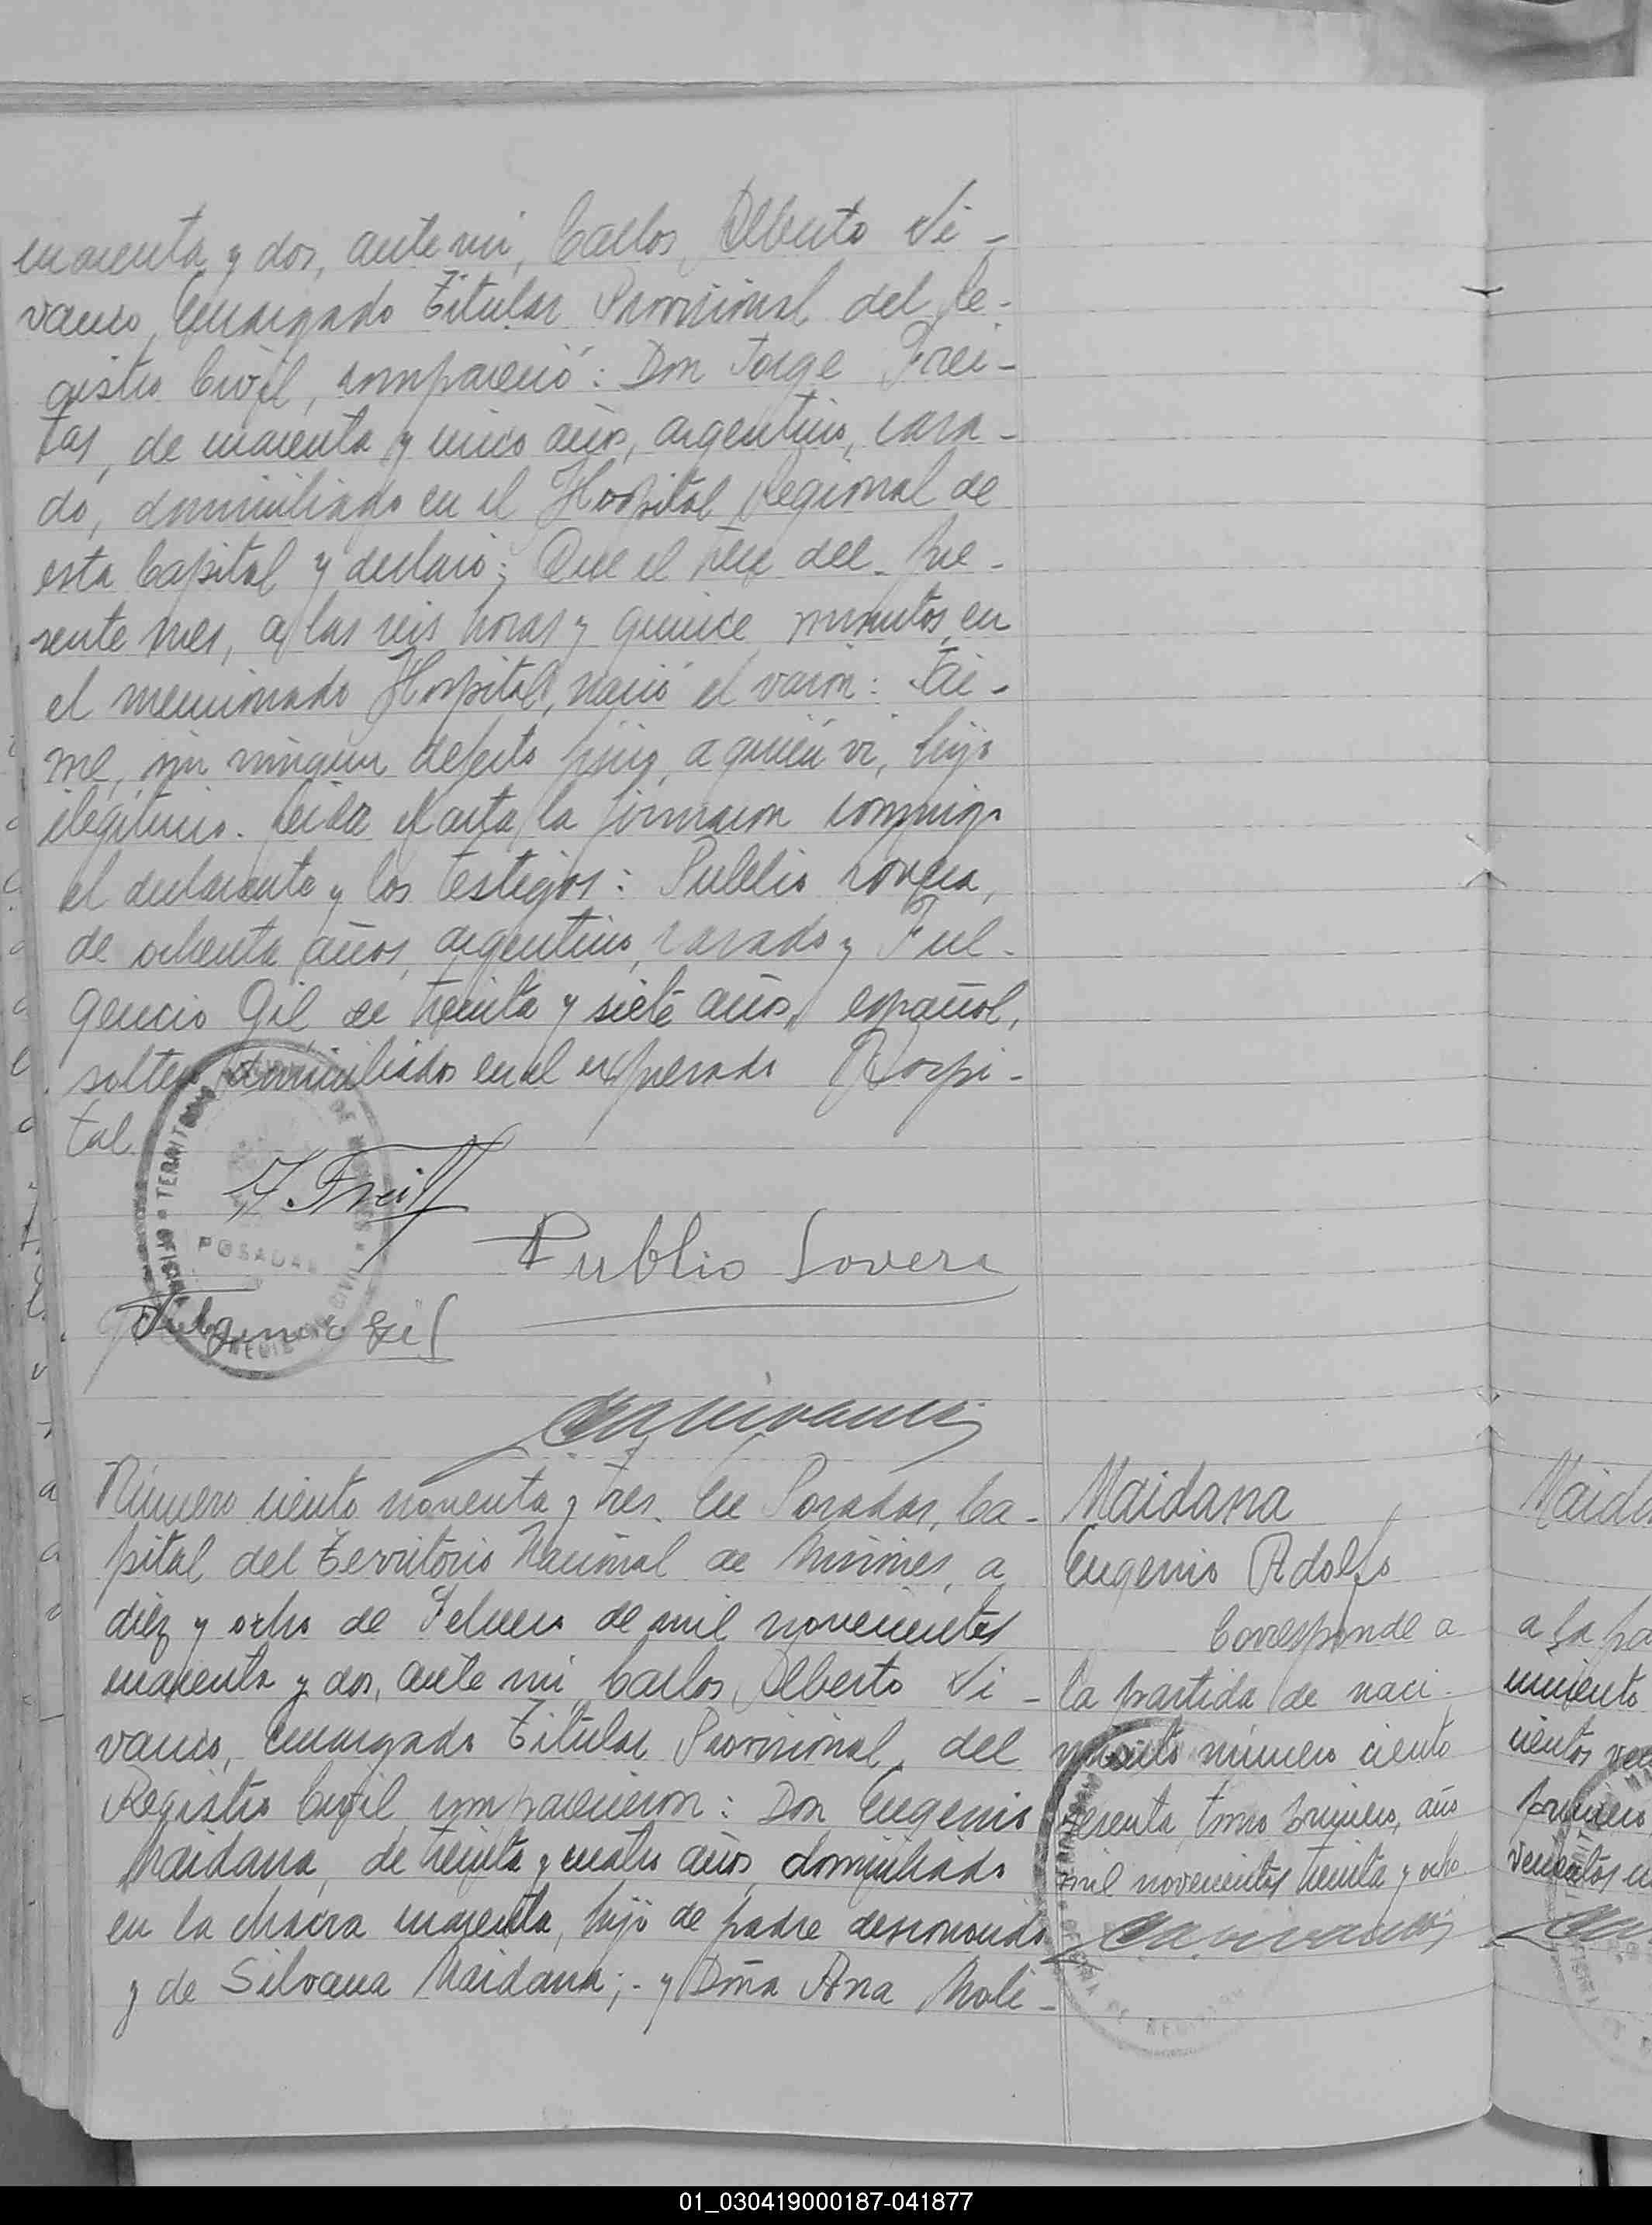 cuarenta y dos, ante mi, Carlos Alberto Vi-
vanco, Encargado Titular Provisional del Re-
gistro Civil, compareció: Don Jorge Frei-
tas, de cuarenta y cinco años, argentino, casa-
do, domiciliado en el Hospital Regional de
esta Capital y declaró: Que el trece del pre-
sente mes, a las seis horas y quince minutos, en
el mencionado Hospital, nació el varón: Jai-
me, sin ningun defecto fisico, a quién vi, hijo
ilegítimo. Leida el acta la firmaron conmigo
el declarante y los testigos: Publio Lovera,
de ochenta años, argentino, casado y Ful-
gencio Gil, de treinta y siete años, español,
soltero domiciliados en el expresado Hospi-
tal.
J. Freitas
POSADAS
Publio Lovera
Fulgencio Gil
CAVivanco
Número ciento noventa y tres. En Posadas, Ca-
pital del Territorio Nacional de Misiones, a
diez y ocho de Febrero de mil novecientos
cuarenta y dos, ante mi Carlos Alberto Vi-
vanco, encargado Titular Provisional, del
Registro Civil, comparecieron: Don Eugenio
Maidana, de treinta y cuatro años, domiciliado
en la chacra cuarenta, hijo de padre desconocido
y de Silvana Maidana;- y Doña Ana Moli-
Maidana
Eugenio Adolfo
Corresponde a
la partida de naci-
miento número ciento
sesenta, tomo primero, año
mil novecientos treinta y ocho
CAVivanco
Maida
a la pa
cimiento
cientos
primero
vecientos
01_030419000187-041877